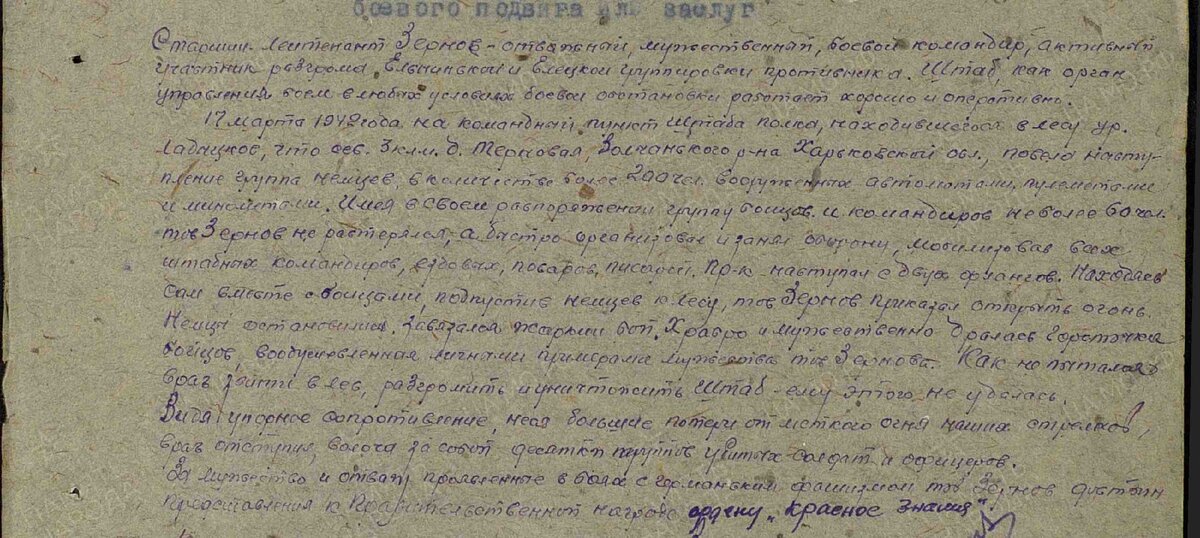 боевого подвига или заслуг
Старший лейтенант Зернов - отважный, мужественный, боевой командир, активный
участник разгрома Ельнинской и Елецкой группировки противника. Штаб, как орган
управления боем в любых условиях боевой обстановки работает хорошо и оперативно.
17 марта 1942 года на командный пункт штаба полка, находившегося в лесу ур.
что сев. 3 клм. д. Терновая, Волчанького р-на Харьковской обл., повела насту-
пление группа немцев, в количестве более 200 чел. вооруженных автоматами, пулеметами
и минометами. Имея в своем распоряжении группу бойцов и командиров не более 60 чел.
тов Зернов не растерялся, а быстро организовал и занял оборону, мобилизовав всех
штабных командиров, ездовых, поваров, писарей. Пр-к наступал с двух флангов. Находясь
сам вместе с бойцами, подпустив немцев к лесу, тов Зернов приказал открыть огонь.
Немцы остановились. Завязался жаркий бой. Храбро и мужественно дралась горсточка
бойцов, личными примерами мужества тов Зернова. Как не пытался
враг зайти в лес, разгромить и уничтожить Штаб - ему этого не удалась.
Видя упорное сопротивление, неся большие потери от меткого огня наших стрелков,
враг отступил, волоча за собой десятки трупов убитых солдат и офицеров.
За мужество и отвагу проявленные в боях с германьким фашизмом тов Зернов достоин
представления к Правительственной награде ордену "Красное Знамя".